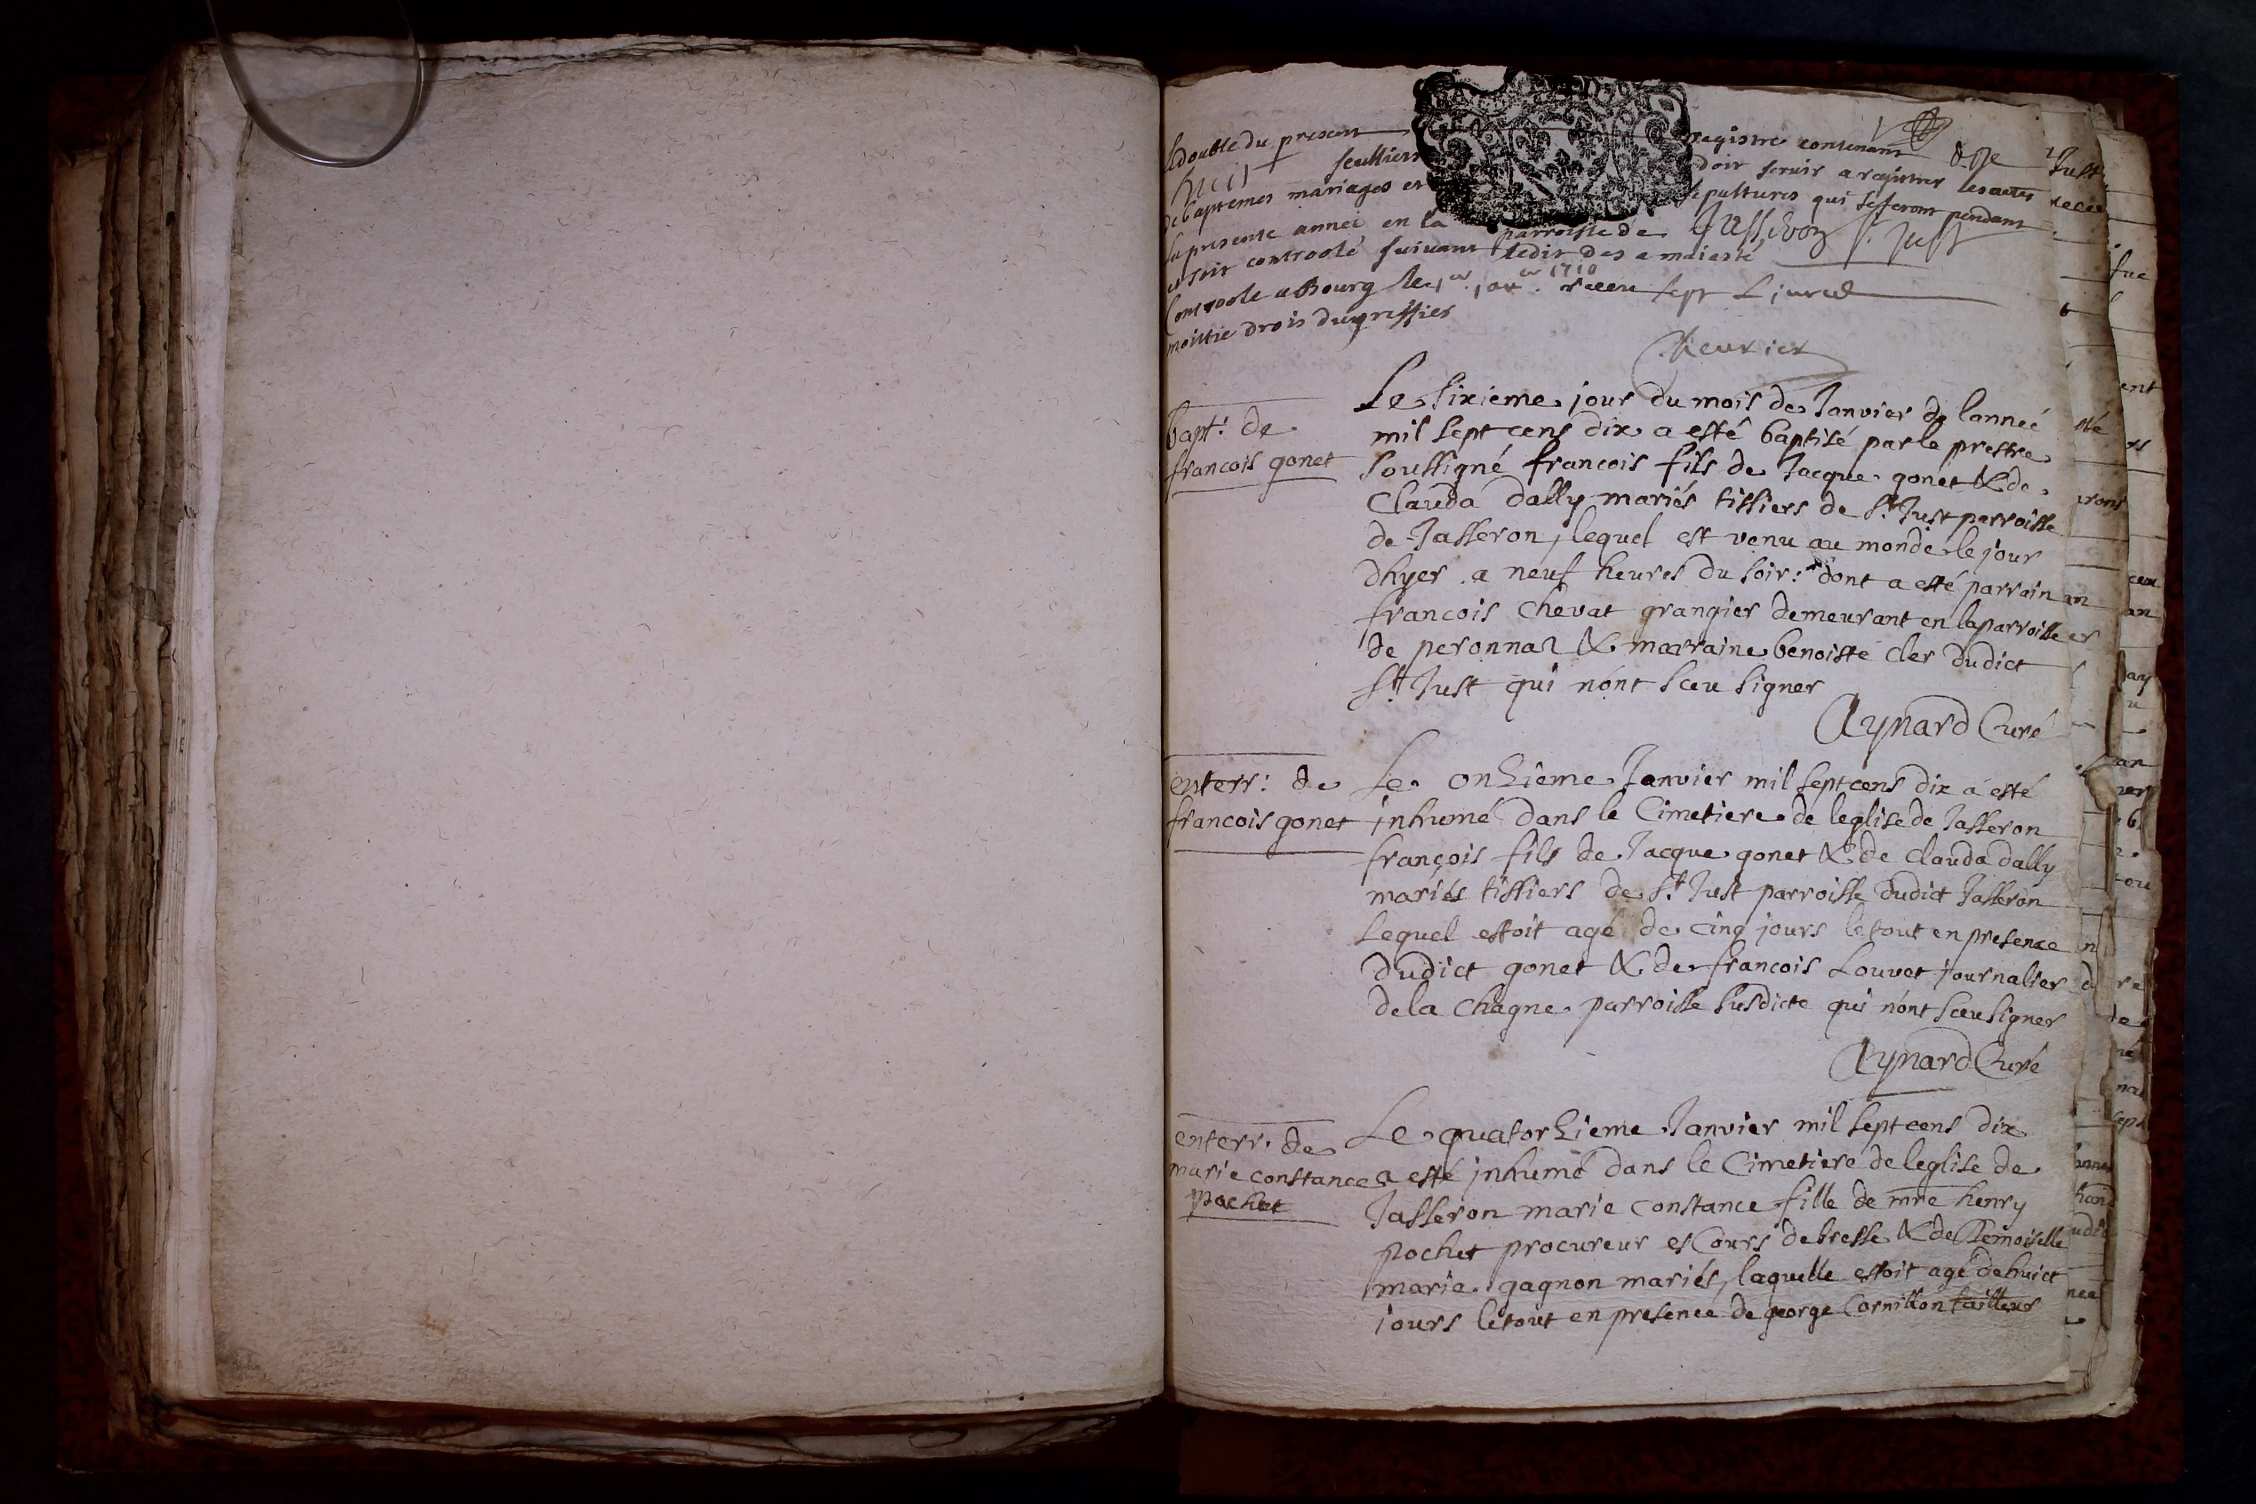 le double du present registre contenant
huit feulliers doit servir a registrer les actes
de baptemes mariages et sepultures qui se feront pendant
la presente année en la parroisse de Jasseron St Just
et soit controolé suivant ledit de sa maiesté
Controole a Bourg le 1er janer 1710 receu sept Livres
moittie drois du greffier
Cheurier
bapt: de
francois gonet
Le sixieme jour du mois de Janvier de lanneé
mil sept cens dix a esté baptisé par le prestre
soussigné francois fils de Jacque gonet & de
Clauda dally mariés tissiers de St Just parroisse
de Jasseron, lequel est venu au monde le jour
dhyer a neuf heures du soir: dont a esté parrain
francois Chevat grangier demeurant en la parroisse
de peronnas & marraine benoiste cler dudict
St Just qui n'ont sceu signer
Aynard Curé
enterr: de
francois gonet
Le onzieme Janvier mil sept cens dix a esté
inhumé dans le Cimetiere de leglise de Jasseron
françois fils de Jacque gonet & de clauda dally
mariés tissiers de St Just parroisse dudict Jasseron
Lequel estoit agé de cinq jours le tout en presence
dudict gonet & de francois Louvet journalier
de la Chagne parroisse susdicte qui n'ont sceu signer
Aynard Curé
enterr. de
marie constance
pochet
Le quatorzieme Janvier mil sept cens dix
a esté inhumé dans le Cimetiere de leglise de
Jasseron marie constance fille de mre henry
pochet procureur es Cours de bresse & de Demoiselle
marie gagnon mariés, laquelle estoit agé de huict
jours le tout en presence de george Cornillon tailleur